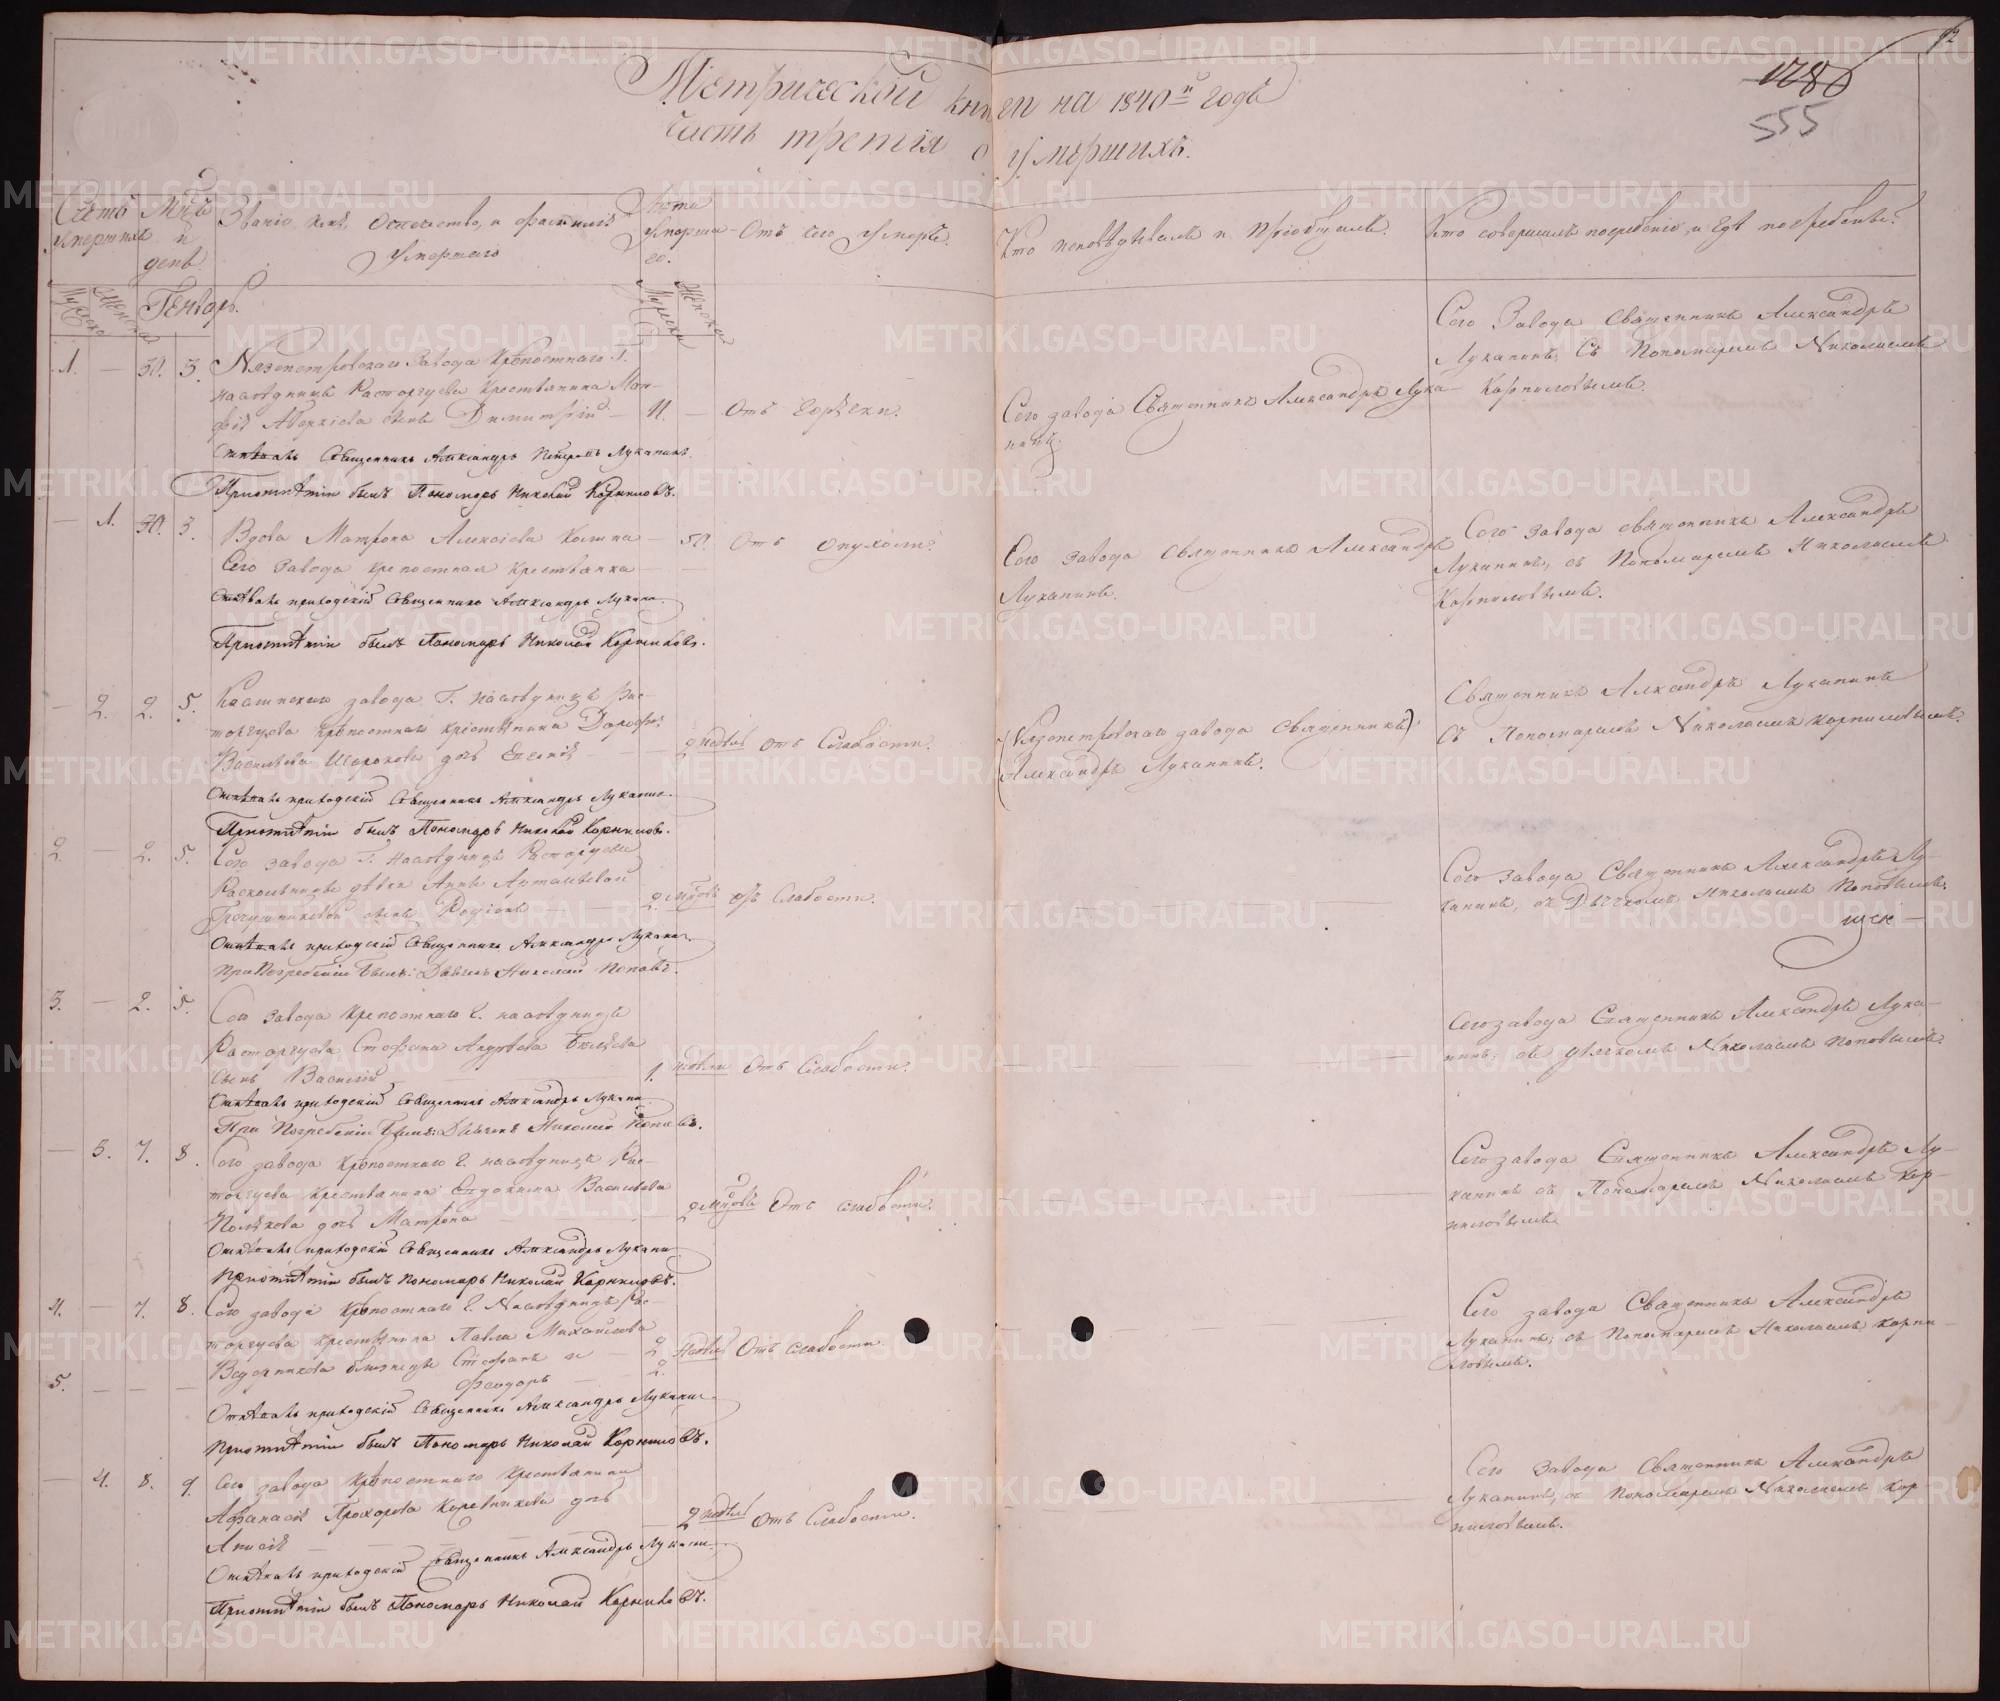 Метрической книги на 1840й годъ
часть третія о умершихъ.
12
1280
555
Счетъ умершихъ
Мцъ и день
Званіе, имя, отечество, и фамилія умершаго
Лета умершаго.
Отъ чего умеръ.
Кто исповѣдывалъ и пріобщалъ.
Кто совершалъ погребеніе, и гдѣ погребены.
Мужеска
Женска
Генварь.
Мужеска
Женска
1. — 30. 3. Нязепетровскаго завода крѣпостнаго Г.
наслѣдницъ Расторгуева крестьянина
Аверкіева сынъ Димитрій — 11. — Отъ горячки.
Сего завода Священникъ Александръ Лука-
нинъ.
Сего Завода Священникъ Александръ
Луканинъ, съ Пономаремъ Николаемъ
Корниловымъ.
Отпѣвалъ Священникъ Александръ Петровъ Луканинъ.
При отпѣтіи былъ Пономарь Николай Корниловъ.
— 1. 30. 3. Вдова Матрона Алексіева — 50. Отъ опухоли.
Сего завода крепостная крестьянка
Сего завода Священникъ Александръ
Луканинъ.
Сего завода священникъ Александръ
Луканинъ, съ Пономаремъ Николаемъ
Корниловымъ.
Отпѣвалъ приходскій Священникъ Александръ Луканинъ.
При отпѣтіи былъ Пономарь Николай Корниловъ.
— 2. 2. 5. Каслинскаго завода Г. наслѣдницъ Рас-
торгуева крѣпостнаго крестьянина
Васильева дочь Евгенія — 2 недѣль отъ Слабости.
(Нязепетровскаго завода Священникъ)
Александръ Луканинъ.
Священникъ Александръ Луканинъ
съ Пономаремъ Николаемъ Корниловымъ.
Отпѣвалъ приходскій Священникъ Александръ Луканинъ.
При отпѣтіи былъ Пономарь Николай Корниловъ.
2. — 2. 5. Сего завода Г. наслѣдницъ Расторгуева
девки Анны
сынъ Родіонъ — 2. мцовъ отъ Слабости.
Сего завода Священникъ Александръ Лу-
канинъ, съ Дьячкомъ Николаемъ Поповымъ.
Отпѣвалъ приходскій Священникъ Александръ Луканинъ.
При Погребеніи былъ: Дьячекъ Николай Поповъ.
3. — 2. 5. Сего завода крепостнаго Г. наслѣдницъ
Расторгуева, Стефана Андреева Бѣляева
сынъ Василій — 1. недѣли Отъ Слабости.
Сего завода Священникъ Александръ Лука-
нинъ, съ дьячкомъ Николаемъ Поповымъ.
Отпѣвалъ приходскій Священникъ Александръ Луканинъ.
При Погребеніи былъ: Дьячекъ Николай Поповъ.
— 3. 7. 8. Сего завода крѣпостнаго Г. наслѣдницъ Рас-
торгуева крестьянина Евдокима Васильева
Полякова дочь Матрона — 2 мцовъ Отъ слабости.
Сего завода Священникъ Александръ Лу-
канинъ съ Пономаремъ Николаемъ Кор-
ниловымъ.
Отпѣвалъ приходскій Священникъ Александръ Луканинъ.
При отпѣтіи былъ Пономарь Николай Корниловъ.
4. — 7. 8. Сего завода крѣпостнаго Г. Наслѣдницъ Рас-
торгуева крестьянина Павла Михайлова
близнецы Стефанъ и — 2 недѣль Отъ слабости.
5. — — — Феодоръ — 2.
Сего завода Священникъ Александръ
Луканинъ, съ Пономаремъ Николаемъ Корни-
ловымъ.
Отпѣвалъ приходскій Священникъ Александръ Луканинъ.
При отпѣтіи былъ Пономарь Николай Корниловъ.
— 4. 8. 9. Сего завода крѣпостнаго крестьянина
Афанасія Прохорова дочь
Анисія — 2 недѣль Отъ Слабости.
Сего завода Священникъ Александръ
Луканинъ, съ Пономаремъ Николаемъ Кор-
ниловымъ.
Отпѣвалъ приходскій Священникъ Александръ Луканинъ.
При отпѣтіи былъ Пономарь Николай Корниловъ.
METRIKI.GASO-URAL.RU